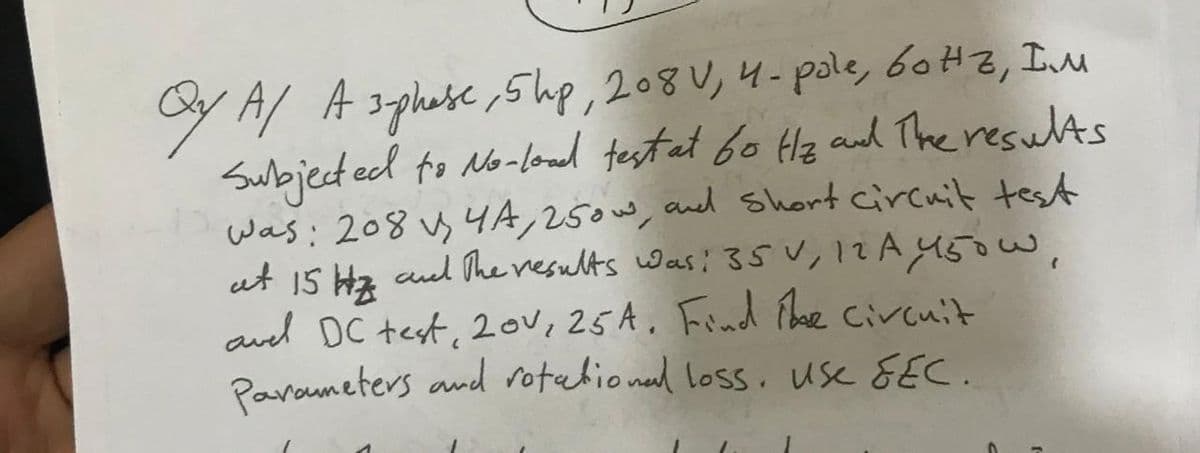 Q/ A/ A 3-phase, 5hp, 208 V, 4-pole, 60HZ, I.M
Subjected to No-load test at 60 Hz and The results
was: 208 V, 4A, 250w, and short circuit test
at 15 Hz and The results was: 35 V, 12 A, 450 w,
and DC test, 20V, 25A. Find The circuit
Parameters and rotational loss. use EEC.